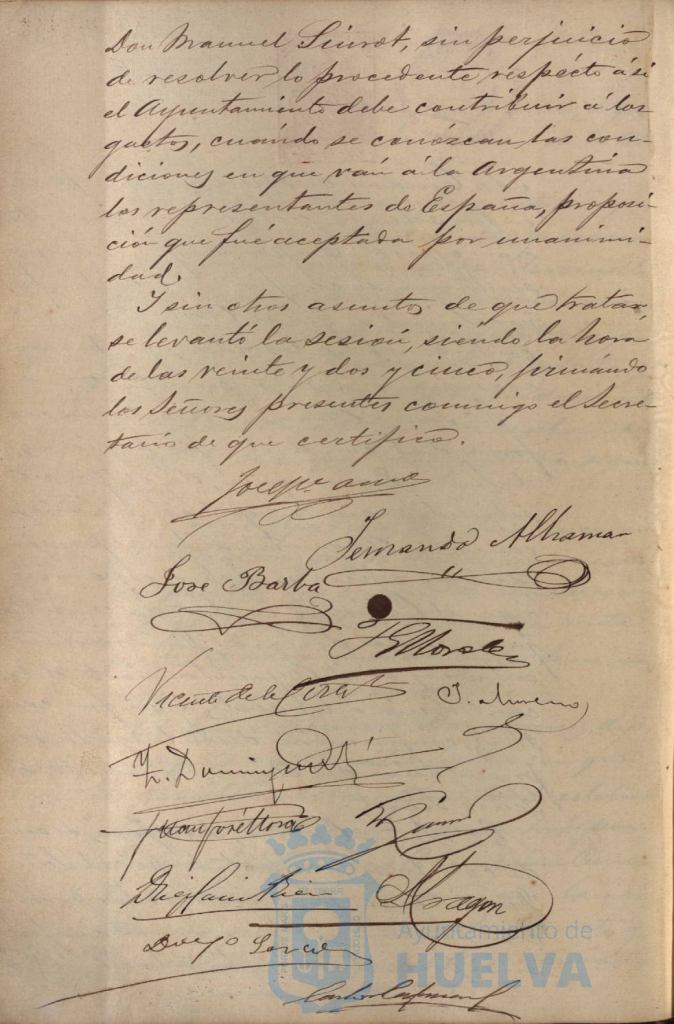 Don Manuel Siurot, sin perjuicio
de resolver lo procedente respécto á si
el Ayuntamiento debe contribuir á los
gastos, cuándo se conózcan las con-
diciones en que ván á la Argentina
los representantes de España, proposi-
ción que fué aceptada por unanimi-
dad.
Y sin otros asuntos de que tratar,
se levantó la sesión, siendo la hora
de las veinte y dos y cinco, firmándo
los Señores presentes conmigo el Secre-
tario de que certifico.
Fernando Alhama
José Barba
Vicente de la
J. Moreno
F. Dominguez
Juan José Mora
Aragon
Diego Garcia
Ayuntamiento de
HUELVA